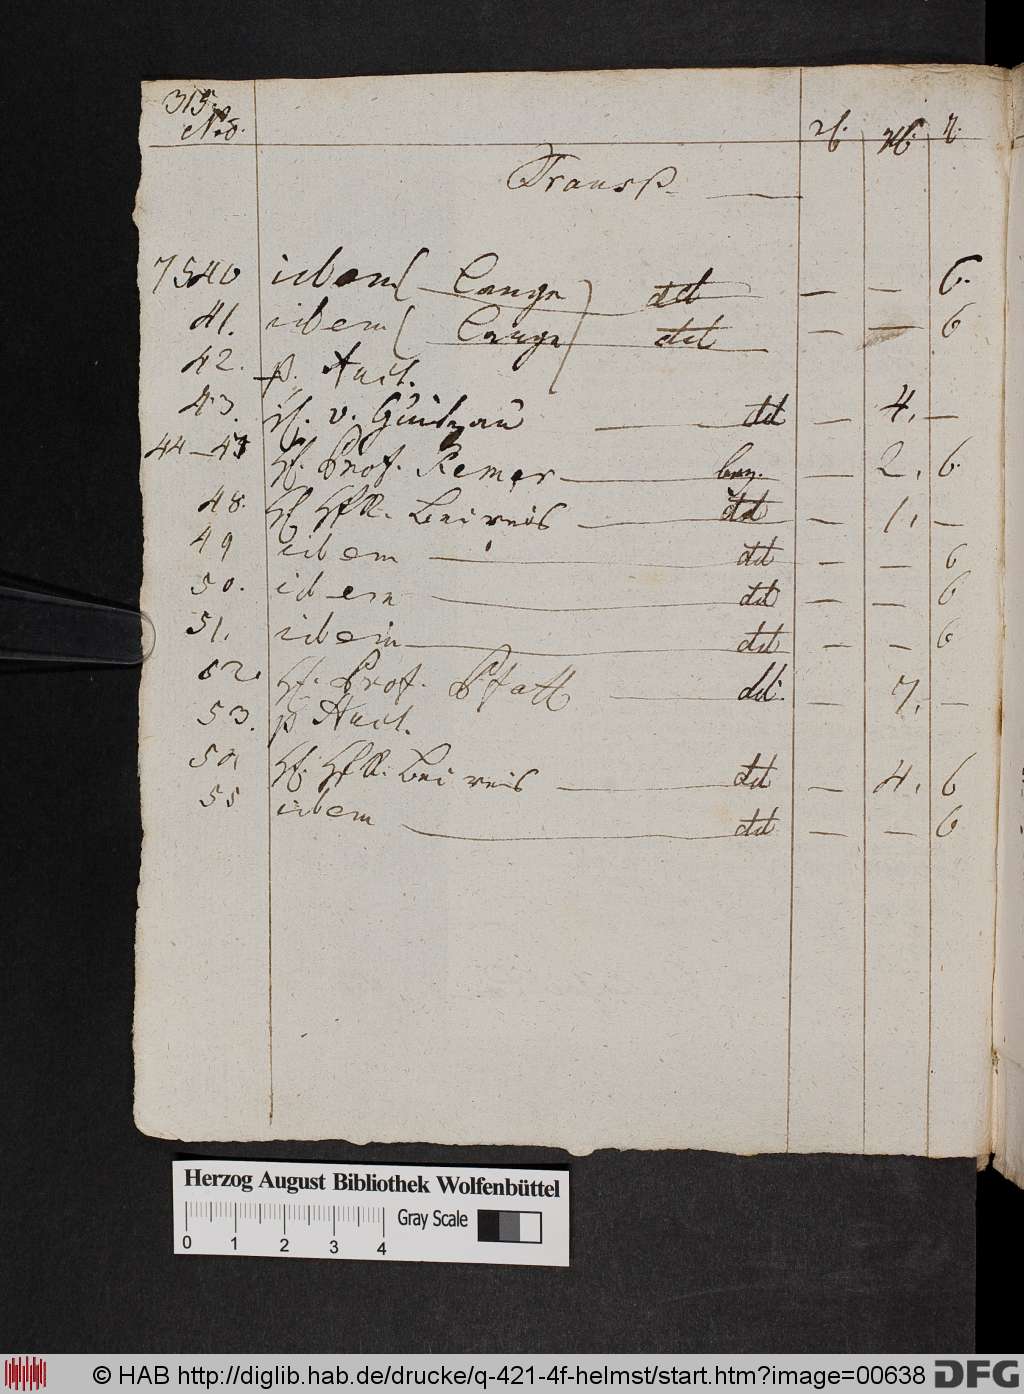 315.
No.
Transp.
7540 idem ( Lange ) dd — — 6.
41. idem ( Lange ) dd — — 6
42. p. Auct.
43. H. v. dd — 4. —
44—47 H. Prof. Remer — — 2. 6.
48. H. HfR. Beireis — dd — 1. —
49 idem — dd — — 6
50. idem — dd — — 6
51. idem — dd — — 6
52. H. Prof. Pfaff — dd. — 7. —
53. p Auct.
54 H. HfR. Beireis — dd — 4. 6
55 idem — dd — — 6
Herzog August Bibliothek Wolfenbüttel
0 1 2 3 4 Gray Scale
© HAB http://diglib.hab.de/drucke/q-421-4f-helmst/start.htm?image=00638 DFG